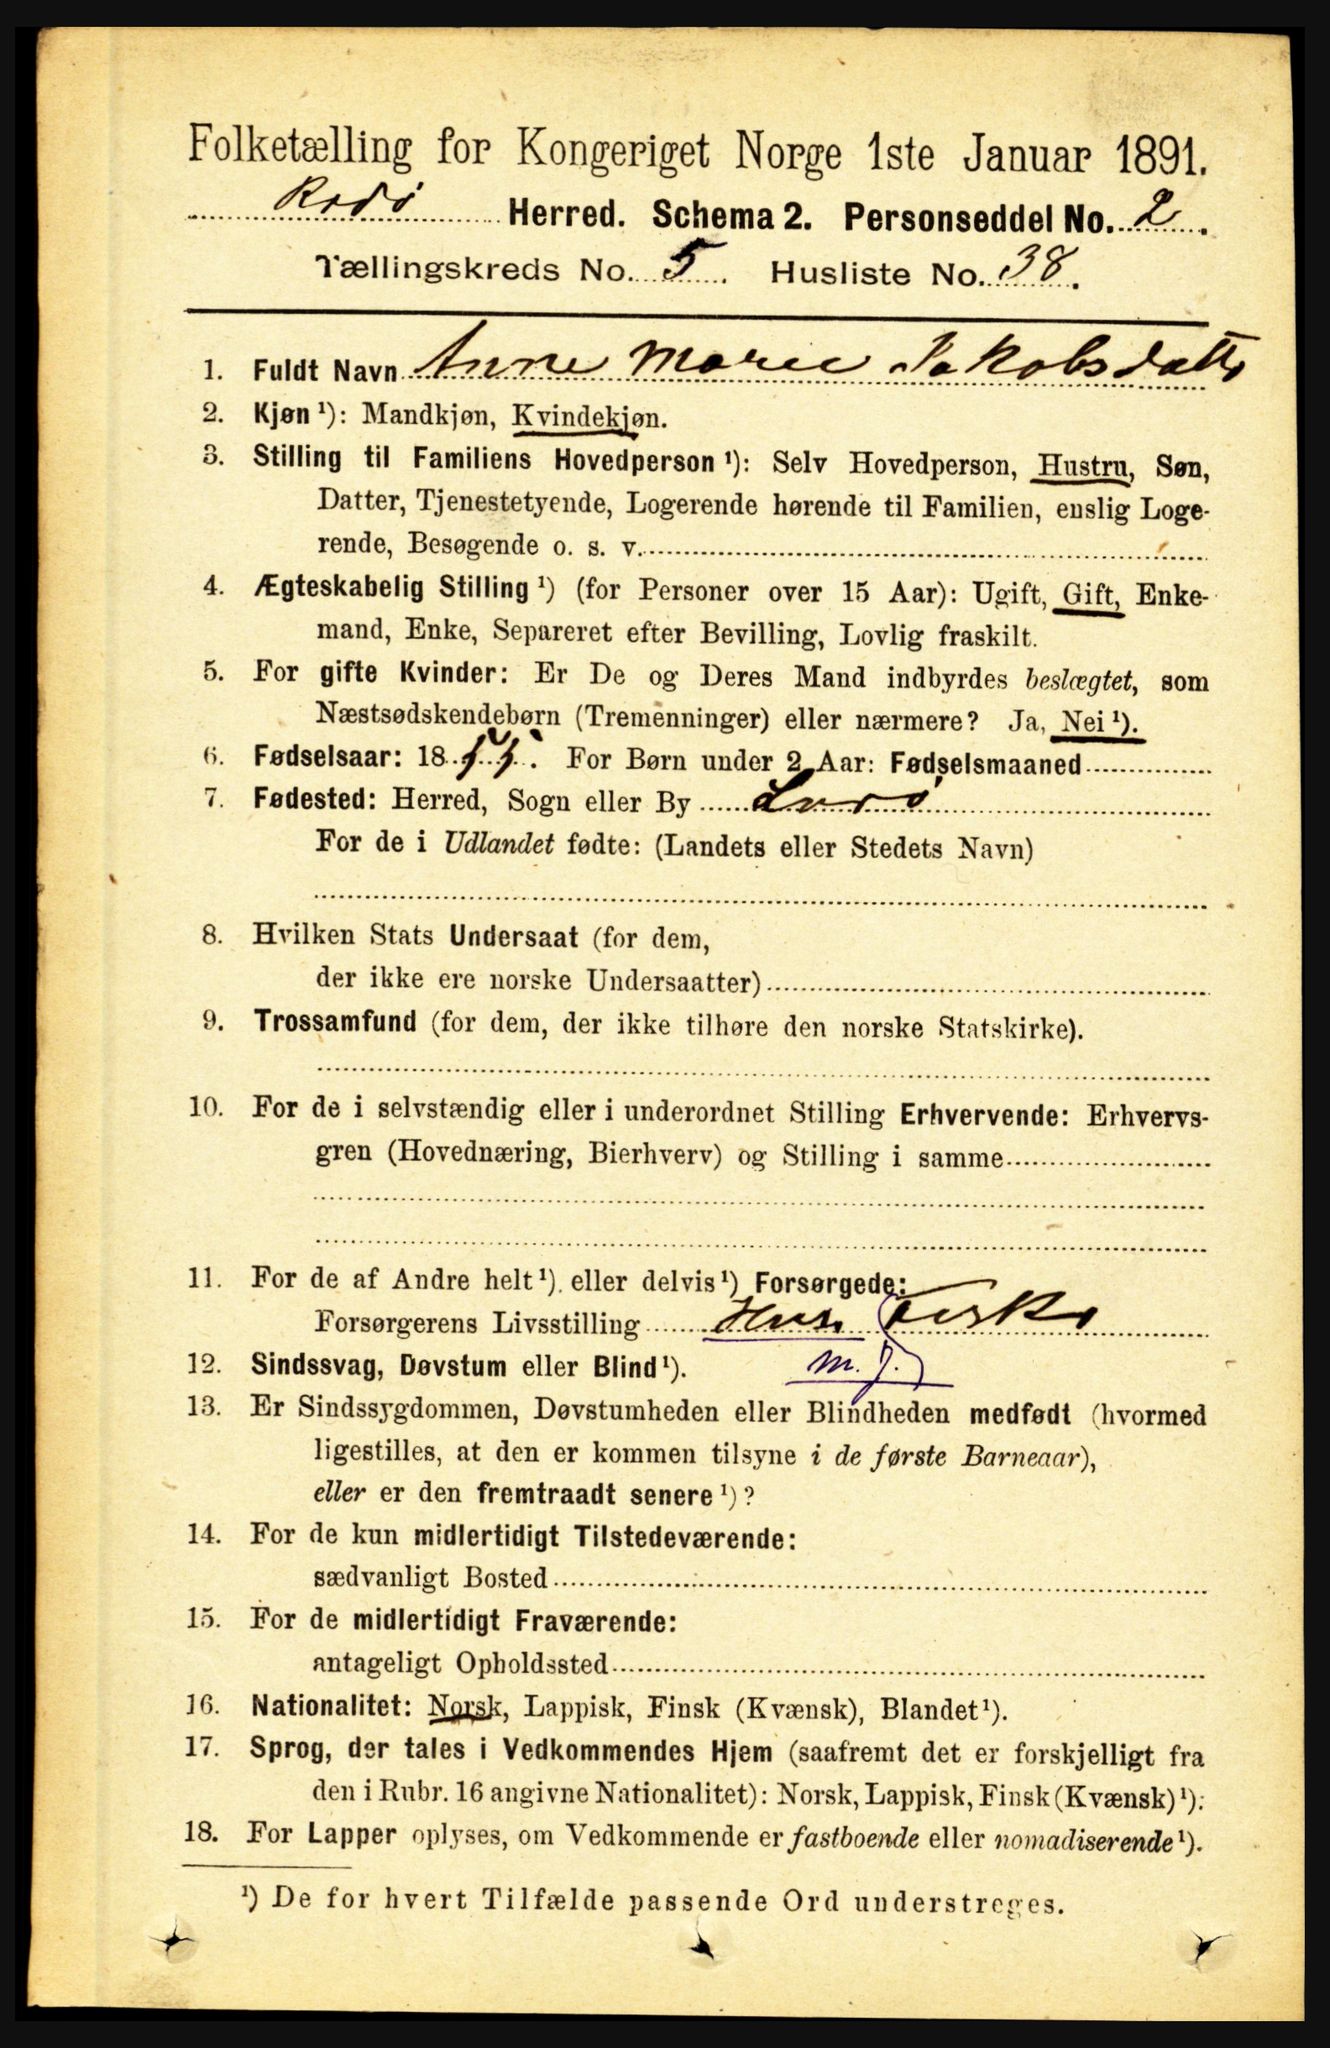 Folketælling for Kongeriget Norge 1ste Januar 1891.
Rodø Herred. Schema 2. Personseddel No. 2.
Tællingskreds No. 5. Husliste No. 38.
1. Fuldt Navn Anne Marie Jakobsdatter
2. Kjøn ¹): Mandkjøn, Kvindekjøn.
3. Stilling til Familiens Hovedperson ¹): Selv Hovedperson, Hustru, Søn,
Datter, Tjenestetyende, Logerende hørende til Familien, enslig Loge-
rende, Besøgende o. s. v.
4. Ægteskabelig Stilling ¹) (for Personer over 15 Aar): Ugift, Gift, Enke-
mand, Enke, Separeret efter Bevilling, Lovlig fraskilt.
5. For gifte Kvinder: Er De og Deres Mand indbyrdes beslægtet, som
Næstsødskendebørn (Tremenninger) eller nærmere? Ja, Nei ¹).
6. Fødselsaar: 1855. For Børn under 2 Aar: Fødselsmaaned
7. Fødested: Herred, Sogn eller By Lurø
For de i Udlandet fødte: (Landets eller Stedets Navn)
8. Hvilken Stats Undersaat (for dem,
der ikke ere norske Undersaatter)
9. Trossamfund (for dem, der ikke tilhøre den norske Statskirke).
10. For de i selvstændig eller i underordnet Stilling Erhvervende: Erhvervs-
gren (Hovednæring, Bierhverv) og Stilling i samme
11. For de af Andre helt ¹). eller delvis ¹) Forsørgede:
Forsørgerens Livsstilling Husm Fisker
12. Sindssvag, Døvstum eller Blind ¹). m. J.
13. Er Sindssygdommen, Døvstumheden eller Blindheden medfødt (hvormed
ligestilles, at den er kommen tilsyne i de første Barneaar),
eller er den fremtraadt senere ¹)?
14. For de kun midlertidigt Tilstedeværende:
sædvanligt Bosted
15. For de midlertidigt Fraværende:
antageligt Opholdssted
16. Nationalitet: Norsk, Lappisk, Finsk (Kvænsk), Blandet ¹).
17. Sprog, der tales i Vedkommendes Hjem (saafremt det er forskjelligt fra
den i Rubr. 16 angivne Nationalitet): Norsk, Lappisk, Finsk (Kvænsk) ¹).
18. For Lapper oplyses, om Vedkommende er fastboende eller nomadiserende ¹).
¹) De for hvert Tilfælde passende Ord understreges.